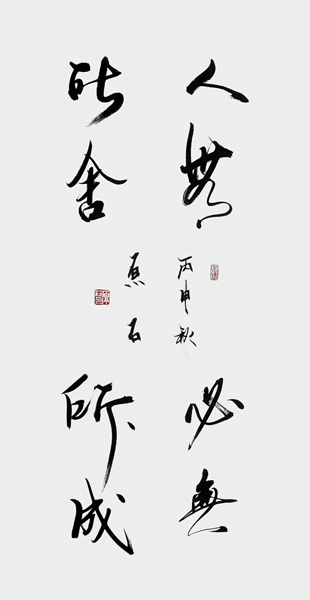 人無
所舍
必無
所成
丙申秋
石